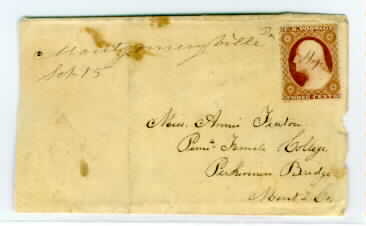 Montgomeryville Pa
Sept 15
U.S. POSTAGE
THREE CENTS
Miss. Annie Fenton
Penn'a Female College
Perkiomen Bridge
Mont. Co.